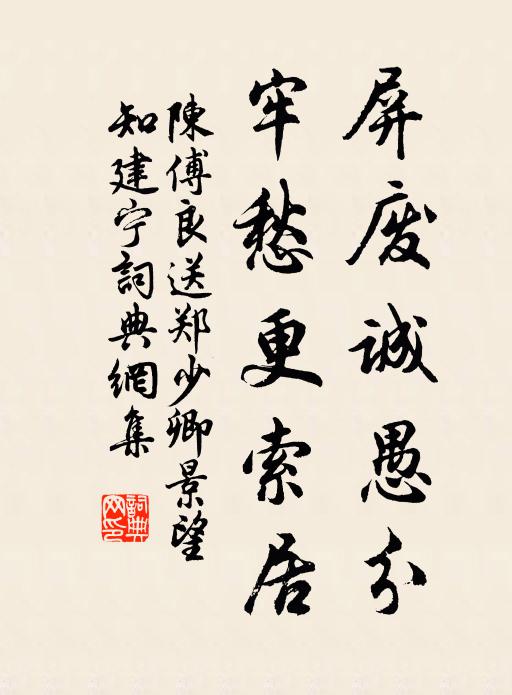 屏废诚愚分
牢愁更索居
陳傅良送郑少卿景望
知建宁詞典網集
詞典
网印